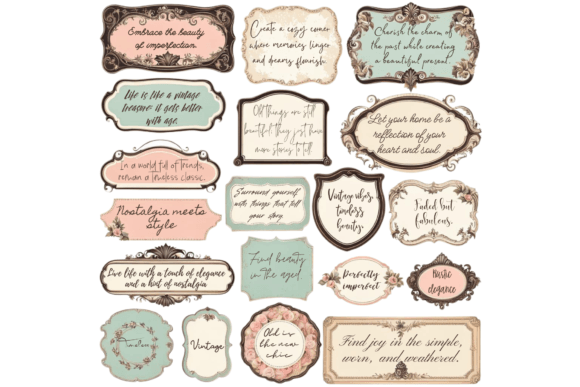 Embrace the beauty
of imperfection.
Create a cozy corner
where memories linger
and dreams flourish.
Cherish the charm of
the past while creating
a beautiful present.
Life is like a vintage
treasure: it gets better
with age.
Old things are still
beautiful; they just have
more stories to tell.
Let your home be a
reflection of your
heart and soul.
In a world full of trends,
remain a timeless classic.
Surround yourself
with things that tell
your story.
Vintage vibes,
timeless
beauty.
Faded but
fabulous.
Nostalgia meets
style
Live life with a touch of elegance
and a hint of nostalgia
Find beauty
in the aged.
Perfectly
imperfect
Rustic
elegance
Timeless
Vintage
Old is
the new
chic
Find joy in the simple,
worn, and weathered.